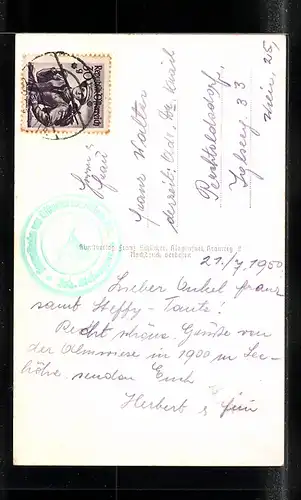 Republik Österreich
Herrn &
Frau
Franz Walter
derzeit: Adr.
Perchtoldsdorf
33
Wien, 25,
Alleinverlag Franz Schilcher, Klagenfurt,
Nachdruck verboten
21./7.1950
Lieber Onkel Franz
samt Steffy-Tante!
Recht schöne Grüße von
der Almwiese in 1900 m See-
höhe senden Euch
Herbert &